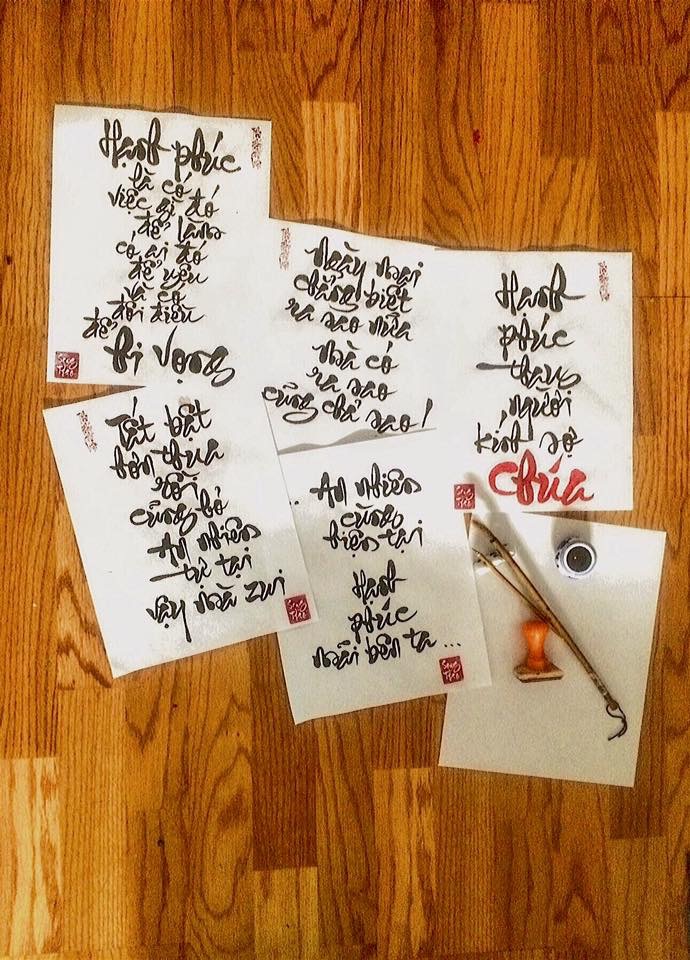 Hạnh phúc
là có
việc gì đó
để làm
có ai đó
để yêu
và có
đôi điều
để
hi vọng
Song
Thao
Ngày mai
chẳng biết
ra sao nữa
mà có
ra sao
cũng chả sao!
Hạnh
phúc
thay
người
kính sợ
Chúa
Tất bật
hơn thua
rồi
cũng bỏ
An nhiên
tự tại
vậy mà zui
Song
Thao
... An nhiên
cùng
hiện tại
Hạnh
phúc
mãi bên ta ...
Song
Thao